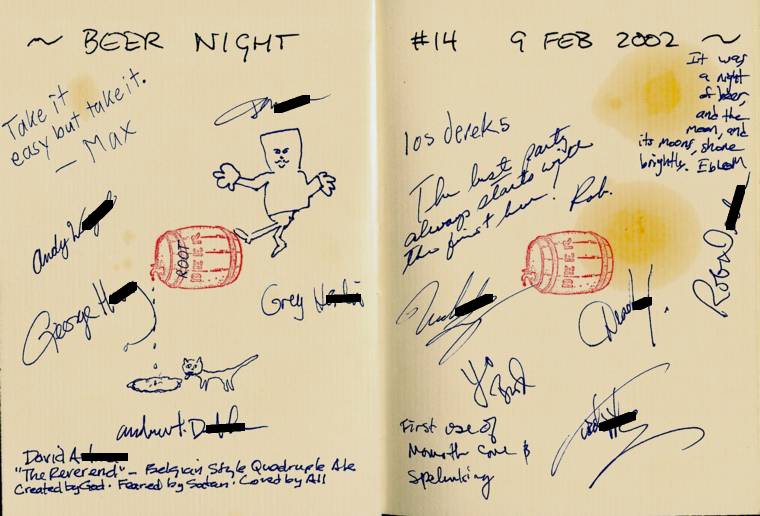 ~ BEER NIGHT
Take it
easy but take it.
— Max
Andy
ROOT
BEER
George
Greg
David
"The Reverend" – Belgian Style Quadruple Ale
Created by God · Feared by Satan · Loved by All
#14 9 FEB 2002 ~
It was
a night
of beer,
and the
moon, and
its moons, shone
brightly.
los dereks
The best party
always starts with
the first beer!
Rob.
BEER
Yo
First use of
Mammoth Cave &
Spelunking